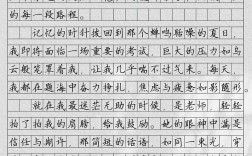 的每一段路程。
记忆的时针拨回到那个蝉鸣聒噪的夏日，
我即将面临一场重要的考试，巨大的压力如乌
云般笼罩着我，让我几乎喘不过气来。每天，
我都在题海中奋力挣扎，焦虑与疲惫如影随形。
就在我最迷茫无助的时候，是老师，轻轻
拍了拍我的肩膀，给我鼓励。他的眼神中满是
信任与期许，那简短的话语，如同一束光，穿